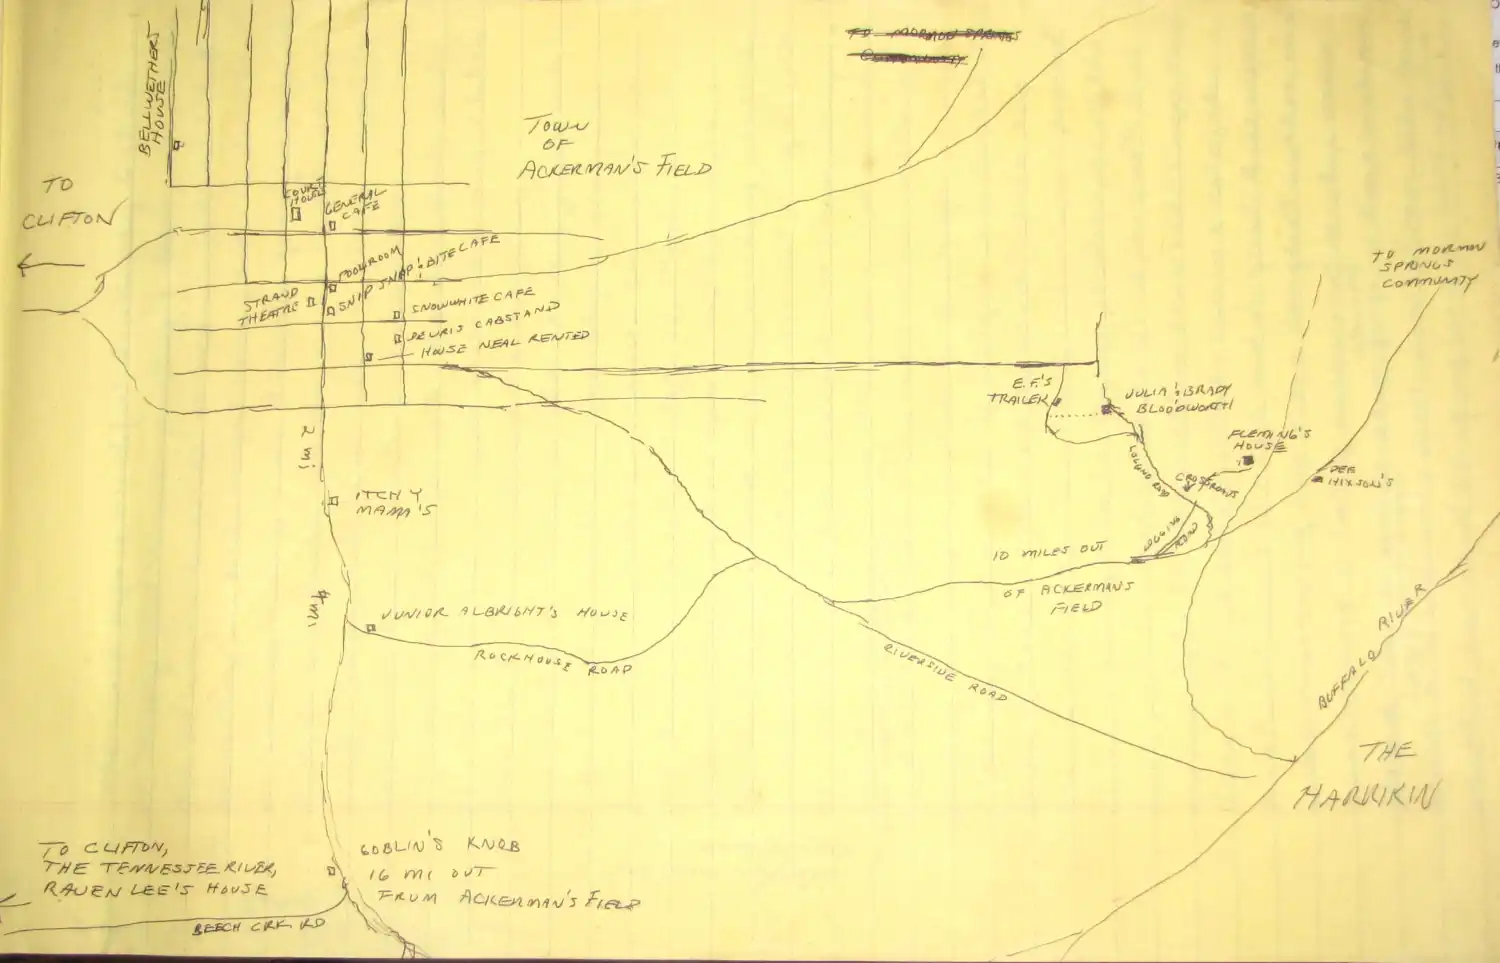 BELLWETHERS
HOUSE
TO MORMON SPRINGS
COMMUNITY
TOWN
OF
ACKERMAN'S FIELD
TO
CLIFTON
COURT
HOUSE
GENERAL
CAFE
POOLROOM
SNIP SNAP & BITE CAFE
STRAND
THEATRE
SNOWWHITE CAFE
CABSTAND
HOUSE NEAL RENTED
TO MORMON
SPRINGS
COMMUNITY
E.F.'S
TRAILER
JULIA & BRADY
BLOODWORTH
FLEMING'S
HOUSE
LOGGING ROAD
CROSSROADS
DEE
HIXSON'S
LOGGING
ROAD
2 mi
ITCHY
MAMA'S
10 MILES OUT
OF ACKERMAN'S
FIELD
4 mi
JUNIOR ALBRIGHT'S HOUSE
ROCKHOUSE ROAD
RIVERSIDE ROAD
BUFFALO RIVER
THE
HARRIKIN
TO CLIFTON,
THE TENNESSEE RIVER,
RAVEN LEE'S HOUSE
BEECH CRK. RD
GOBLIN'S KNOB
16 MI OUT
FROM ACKERMAN'S FIELD